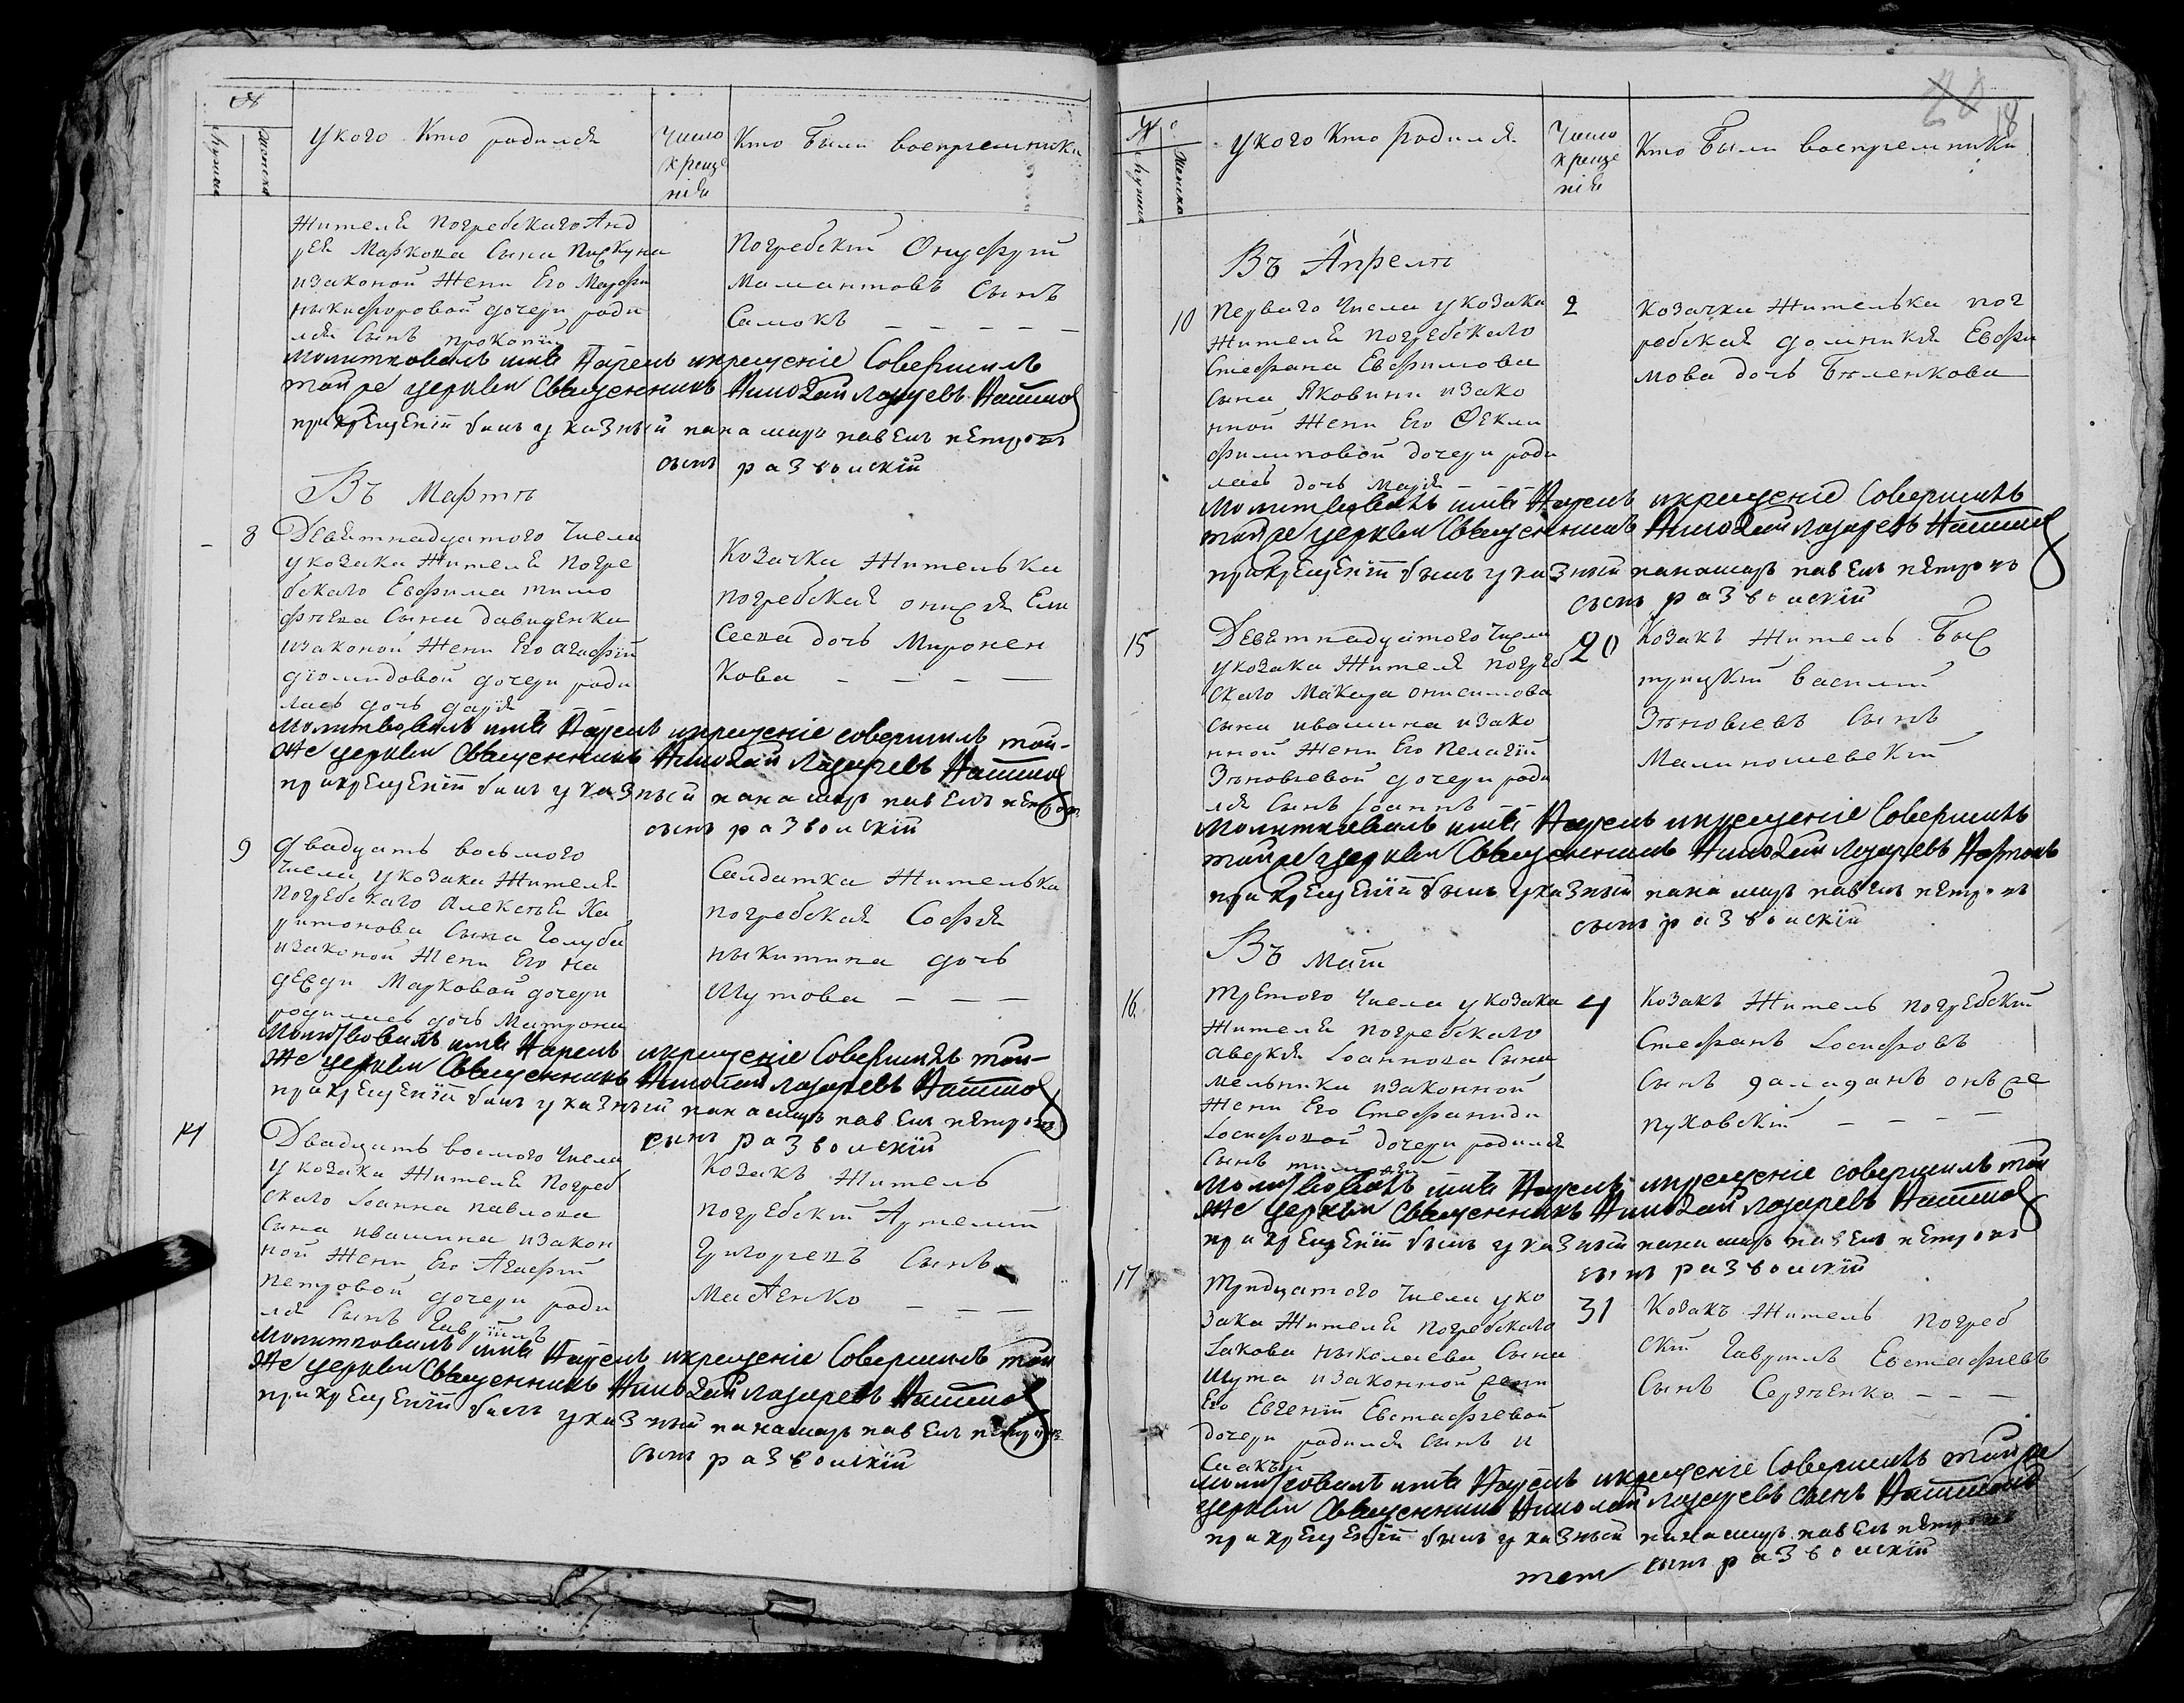 №
мужеска
женска
У кого Кто родился
Число
креще
нія
Кто Были воспреемники
жителя погребскаго Анд
рея Маркова Сына Пискуна
изаконой жени Его Марфи
никифоровой дочери роди
лся Сынъ прокопій
погребскій Онуфрій
Мамантовъ Сынъ
Самокъ — — — — —
Молитвовалъ имя Нарекъ икрещеніе Совершилъ
той же церкви Священникъ Николай Лазаревъ
прикрещеніи билъ указный панамарь павелъ петровъ
сынъ развоискій
Въ Мартѣ
8
Девятнадцатого числа
укозака жителя погре
бскаго Евфима тимо
фѣева Сина давиденка
изаконой жени Его агафіи
діомидовой дочери роди
лась дочь дарія
Козачка жителька
погребская онисія Ели
сеева дочь Миронен
Кова — — — —
Молитвовалъ имя Нарекъ икрещеніе совершилъ той-
же церкви Священникъ Николай Лазаревъ
прикрещеніи билъ указный панамарь павелъ петровъ
сынъ развоискій
9
двадцать восьмого
числа укозака жителя
погребскаго Алексѣя Ха
ритонова Сына Голуба
изаконой жени Его На
дежди Марковой дочери
родилась дочь Матрона
Салдатка жителька
погребская Софія
никитина дочь
Шутова — — —
Молитвовалъ имя Нарекъ икрещеніе Совершилъ той-
же церкви Священникъ Николай Лазаревъ
прикрещеніи билъ указный панамарь павелъ петровъ
сынъ развоискій
14
Двадцать восмого числа
укозака жителя погреб
скаго Іоанна павлова
Сина ивашина изакон
ной жени Его Агафіи
петровой дочери роди
лся Сынъ Гавріилъ
Козакъ житель
погребскій Артемій
Григориевъ Сынъ
Маѣенко — — —
Молитвовалъ имя Нарекъ икрещеніе Совершилъ той
же церкви Священникъ Николай Лазаревъ
прикрещеніи билъ указный панамарь павелъ петровъ
сынъ развоискій
20 18
№
мужеска
Женска
У кого Кто родился
Число
креще
нія
Кто Были воспреемники
Въ Апрелѣ
10
Перваго числа укозака
жителя погребскаго
Стефана Евфимова
Сына Яковини изако
нной жени Его Феклы
филиповой дочери роди
лась дочь Марія
2
Козачка жителька пог
ребская домникія Евфи
мова дочь Бѣленкова
Молитвовалъ имя Нарекъ икрещеніе Совершилъ
той же церкви Священникъ Николай Лазаревъ
прикрещеніи билъ указный панамарь павелъ петровъ
сынъ развоискій
15
Девятнадцатого числа
укозака жителя погреб
скаго Макара онисимова
сына ивашина изако
нной жени Его Пелагіи
Зѣновіевой дочери роди
лся Сынъ Іоаннъ
20
Козакъ житель Быс
трицкій Василій
Зѣновіевъ Сынъ
Малиношевскій
Молитвовалъ имя Нарекъ икрещеніе Совершилъ
той же церкви Священникъ Николай Лазаревъ
прикрещеніи билъ указный панамарь павелъ петровъ
сынъ развоискій
Въ Маіи
16.
третого числа укозака
жителя погребскаго
Аверкія Іоаннова Сына
Мельника изаконной
жени Его Стефаниди
Іосифовой дочери родился
Сынъ тимофей
4
Козакъ житель погребскій
Стефанъ Іосифовъ
Сынъ
пуховскій — — —
Молитвовалъ имя Нарекъ икрещеніе совершилъ той
же церкви Священникъ Николай Лазаревъ
прикрещеніи билъ указный панамарь павелъ петровъ
сынъ развоискій
17
тридцатого числа уко
зака жителя погребскаго
Іакова николаева Сына
Шута изаконной жени
Его Евгеніи Евстафіевой
дочери родился сынъ И
Саакъ
31
Козакъ житель погреб
скій Гавріилъ Евстафіевъ
Сынъ Сергѣенко — — —
Молитвовалъ имя Нарекъ икрещеніе Совершилъ той же
церкви Священникъ Николай Лазаревъ сынъ
прикрещеніи билъ указный панамарь павелъ петровъ
сынъ развоискій